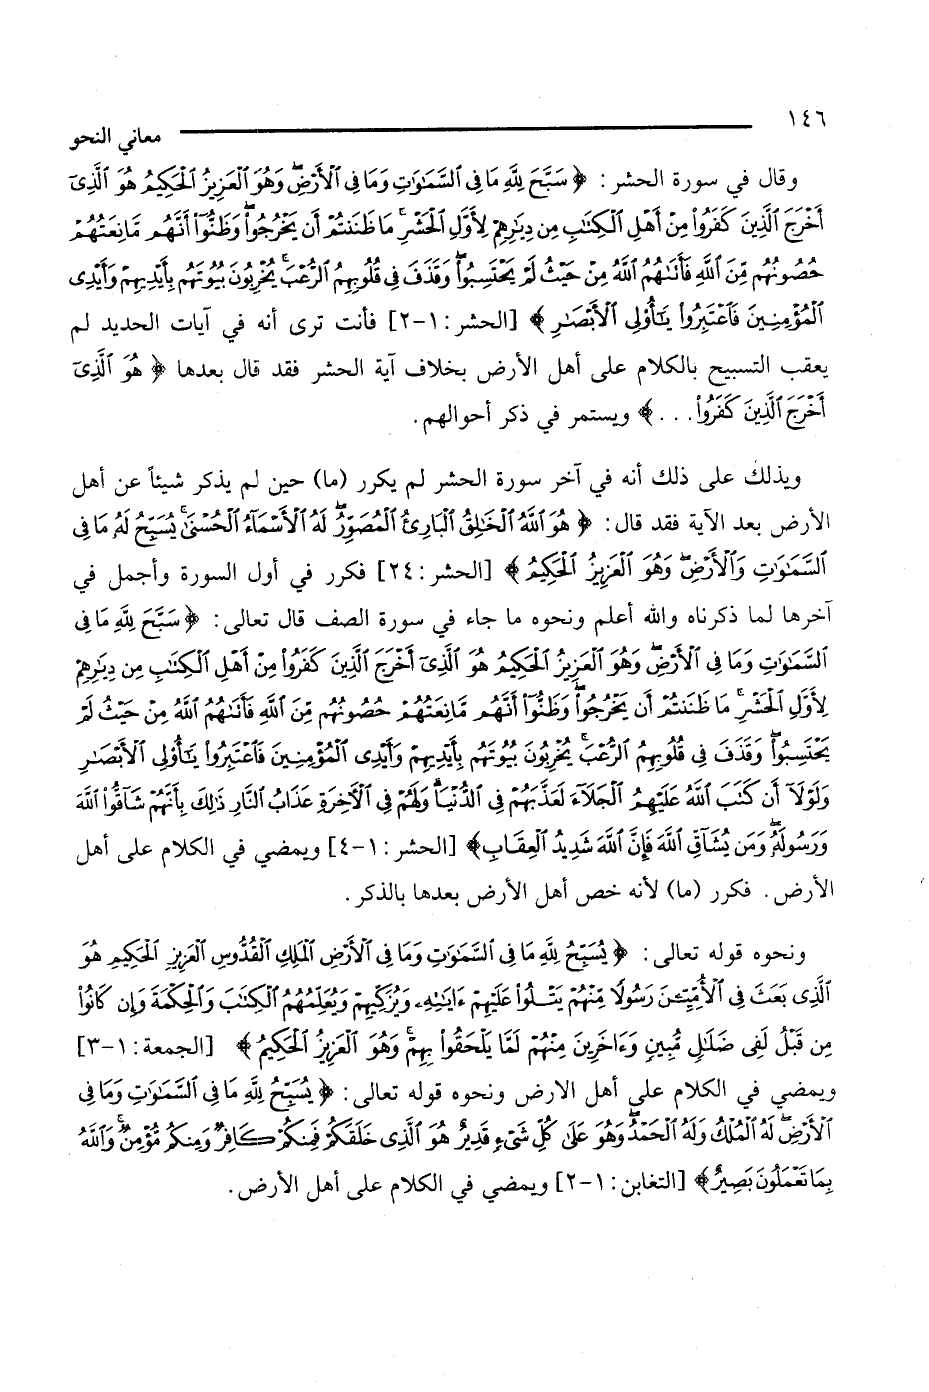 ١٤٦
معاني النحو
وقال في سورة الحشر: ﴿ سَبَّحَ لِلَّهِ مَا فِي ٱلسَّمَٰوَٰتِ وَمَا فِي ٱلْأَرْضِۖ وَهُوَ ٱلْعَزِيزُ ٱلْحَكِيمُ هُوَ ٱلَّذِىٓ
أَخْرَجَ ٱلَّذِينَ كَفَرُوا۟ مِنْ أَهْلِ ٱلْكِتَٰبِ مِن دِيَٰرِهِمْ لِأَوَّلِ ٱلْحَشْرِۚ مَا ظَنَنتُمْ أَن يَخْرُجُوا۟ۖ وَظَنُّوٓا۟ أَنَّهُم مَّانِعَتُهُمْ
حُصُونُهُم مِّنَ ٱللَّهِ فَأَتَىٰهُمُ ٱللَّهُ مِنْ حَيْثُ لَمْ يَحْتَسِبُوا۟ۖ وَقَذَفَ فِى قُلُوبِهِمُ ٱلرُّعْبَۚ يُخْرِبُونَ بُيُوتَهُم بِأَيْدِيهِمْ وَأَيْدِى
ٱلْمُؤْمِنِينَ فَٱعْتَبِرُوا۟ يَٰٓأُو۟لِى ٱلْأَبْصَٰرِ ﴾ [الحشر: ١-٢] فأنت ترى أنه في آيات الحديد لم
يعقب التسبيح بالكلام على أهل الأرض بخلاف آية الحشر فقد قال بعدها ﴿ هُوَ ٱلَّذِىٓ
أَخْرَجَ ٱلَّذِينَ كَفَرُوا۟ . . . ﴾ ويستمر في ذكر أحوالهم.
ويذلك على ذلك أنه في آخر سورة الحشر لم يكرر (ما) حين لم يذكر شيئاً عن أهل
الأرض بعد الآية فقد قال: ﴿ هُوَ ٱللَّهُ ٱلْخَٰلِقُ ٱلْبَارِئُ ٱلْمُصَوِّرُۖ لَهُ ٱلْأَسْمَآءُ ٱلْحُسْنَىٰۚ يُسَبِّحُ لَهُۥ مَا فِى
ٱلسَّمَٰوَٰتِ وَٱلْأَرْضِۖ وَهُوَ ٱلْعَزِيزُ ٱلْحَكِيمُ ﴾ [الحشر: ٢٤] فكرر في أول السورة وأجمل في
آخرها لما ذكرناه والله أعلم ونحوه ما جاء في سورة الصف قال تعالى: ﴿ سَبَّحَ لِلَّهِ مَا فِى
ٱلسَّمَٰوَٰتِ وَمَا فِى ٱلْأَرْضِۖ وَهُوَ ٱلْعَزِيزُ ٱلْحَكِيمُ هُوَ ٱلَّذِىٓ أَخْرَجَ ٱلَّذِينَ كَفَرُوا۟ مِنْ أَهْلِ ٱلْكِتَٰبِ مِن دِيَٰرِهِمْ
لِأَوَّلِ ٱلْحَشْرِۚ مَا ظَنَنتُمْ أَن يَخْرُجُوا۟ۖ وَظَنُّوٓا۟ أَنَّهُم مَّانِعَتُهُمْ حُصُونُهُم مِّنَ ٱللَّهِ فَأَتَىٰهُمُ ٱللَّهُ مِنْ حَيْثُ لَمْ
يَحْتَسِبُوا۟ۖ وَقَذَفَ فِى قُلُوبِهِمُ ٱلرُّعْبَۚ يُخْرِبُونَ بُيُوتَهُم بِأَيْدِيهِمْ وَأَيْدِى ٱلْمُؤْمِنِينَ فَٱعْتَبِرُوا۟ يَٰٓأُو۟لِى ٱلْأَبْصَٰرِ
وَلَوْلَآ أَن كَتَبَ ٱللَّهُ عَلَيْهِمُ ٱلْجَلَآءَ لَعَذَّبَهُمْ فِى ٱلدُّنْيَاۖ وَلَهُمْ فِى ٱلْءَاخِرَةِ عَذَابُ ٱلنَّارِ ذَٰلِكَ بِأَنَّهُمْ شَآقُّوا۟ ٱللَّهَ
وَرَسُولَهُۥۖ وَمَن يُشَآقِّ ٱللَّهَ فَإِنَّ ٱللَّهَ شَدِيدُ ٱلْعِقَابِ﴾ [الحشر: ١-٤] ويمضي في الكلام على أهل
الأرض. فكرر (ما) لأنه خص أهل الأرض بعدها بالذكر.
ونحوه قوله تعالى: ﴿ يُسَبِّحُ لِلَّهِ مَا فِى ٱلسَّمَٰوَٰتِ وَمَا فِى ٱلْأَرْضِ ٱلْمَلِكِ ٱلْقُدُّوسِ ٱلْعَزِيزِ ٱلْحَكِيمِ هُوَ
ٱلَّذِى بَعَثَ فِى ٱلْأُمِّيِّـۧنَ رَسُولًا مِّنْهُمْ يَتْلُوا۟ عَلَيْهِمْ ءَايَٰتِهِۦ وَيُزَكِّيهِمْ وَيُعَلِّمُهُمُ ٱلْكِتَٰبَ وَٱلْحِكْمَةَ وَإِن كَانُوا۟
مِن قَبْلُ لَفِى ضَلَٰلٍ مُّبِينٍ وَءَاخَرِينَ مِنْهُمْ لَمَّا يَلْحَقُوا۟ بِهِمْۚ وَهُوَ ٱلْعَزِيزُ ٱلْحَكِيمُ ﴾ [الجمعة: ١-٣]
ويمضي في الكلام على أهل الارض ونحوه قوله تعالى: ﴿ يُسَبِّحُ لِلَّهِ مَا فِى ٱلسَّمَٰوَٰتِ وَمَا فِى
ٱلْأَرْضِۖ لَهُ ٱلْمُلْكُ وَلَهُ ٱلْحَمْدُۖ وَهُوَ عَلَىٰ كُلِّ شَىْءٍ قَدِيرٌ هُوَ ٱلَّذِى خَلَقَكُمْ فَمِنكُمْ كَافِرٌ وَمِنكُم مُّؤْمِنٌۚ وَٱللَّهُ
بِمَا تَعْمَلُونَ بَصِيرٌ﴾ [التغابن: ١-٢] ويمضي في الكلام على أهل الأرض.